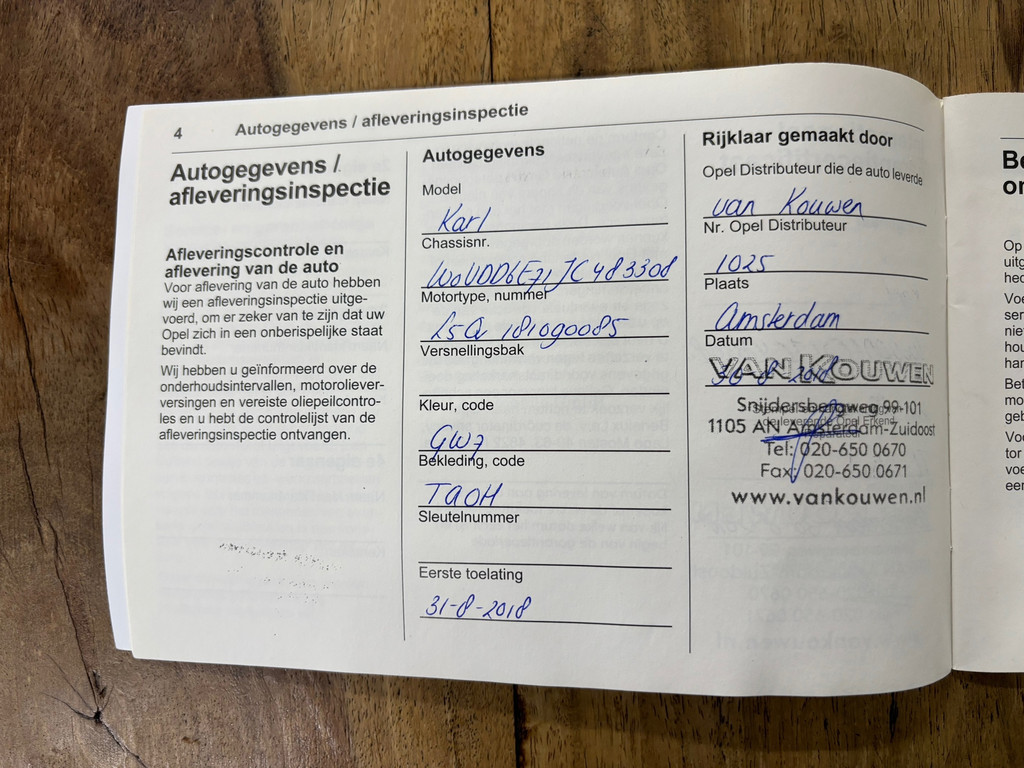 4 Autogegevens / afleveringsinspectie
Autogegevens /
afleveringsinspectie
Afleveringscontrole en
aflevering van de auto
Voor aflevering van de auto hebben
wij een afleveringsinspectie uitge-
voerd, om er zeker van te zijn dat uw
Opel zich in een onberispelijke staat
bevindt.
Wij hebben u geïnformeerd over de
onderhoudsintervallen, motoroliever-
versingen en vereiste oliepeilcontro-
les en u hebt de controlelijst van de
afleveringsinspectie ontvangen.
Autogegevens
Model
Karl
Chassisnr.
W0VDD6E71JC483308
Motortype, nummer
L5Q 181090085
Versnellingsbak
Kleur, code
GW7
Bekleding, code
TAOH
Sleutelnummer
Eerste toelating
31-8-2018
Rijklaar gemaakt door
Opel Distributeur die de auto leverde
van Kouwen
Nr. Opel Distributeur
1025
Plaats
Amsterdam
Datum
VAN KOUWEN
Snijdersbergweg 99-101
1105 AN Amsterdam-Zuidoost
Tel: 020-650 0670
Fax: 020-650 0671
www.vankouwen.nl